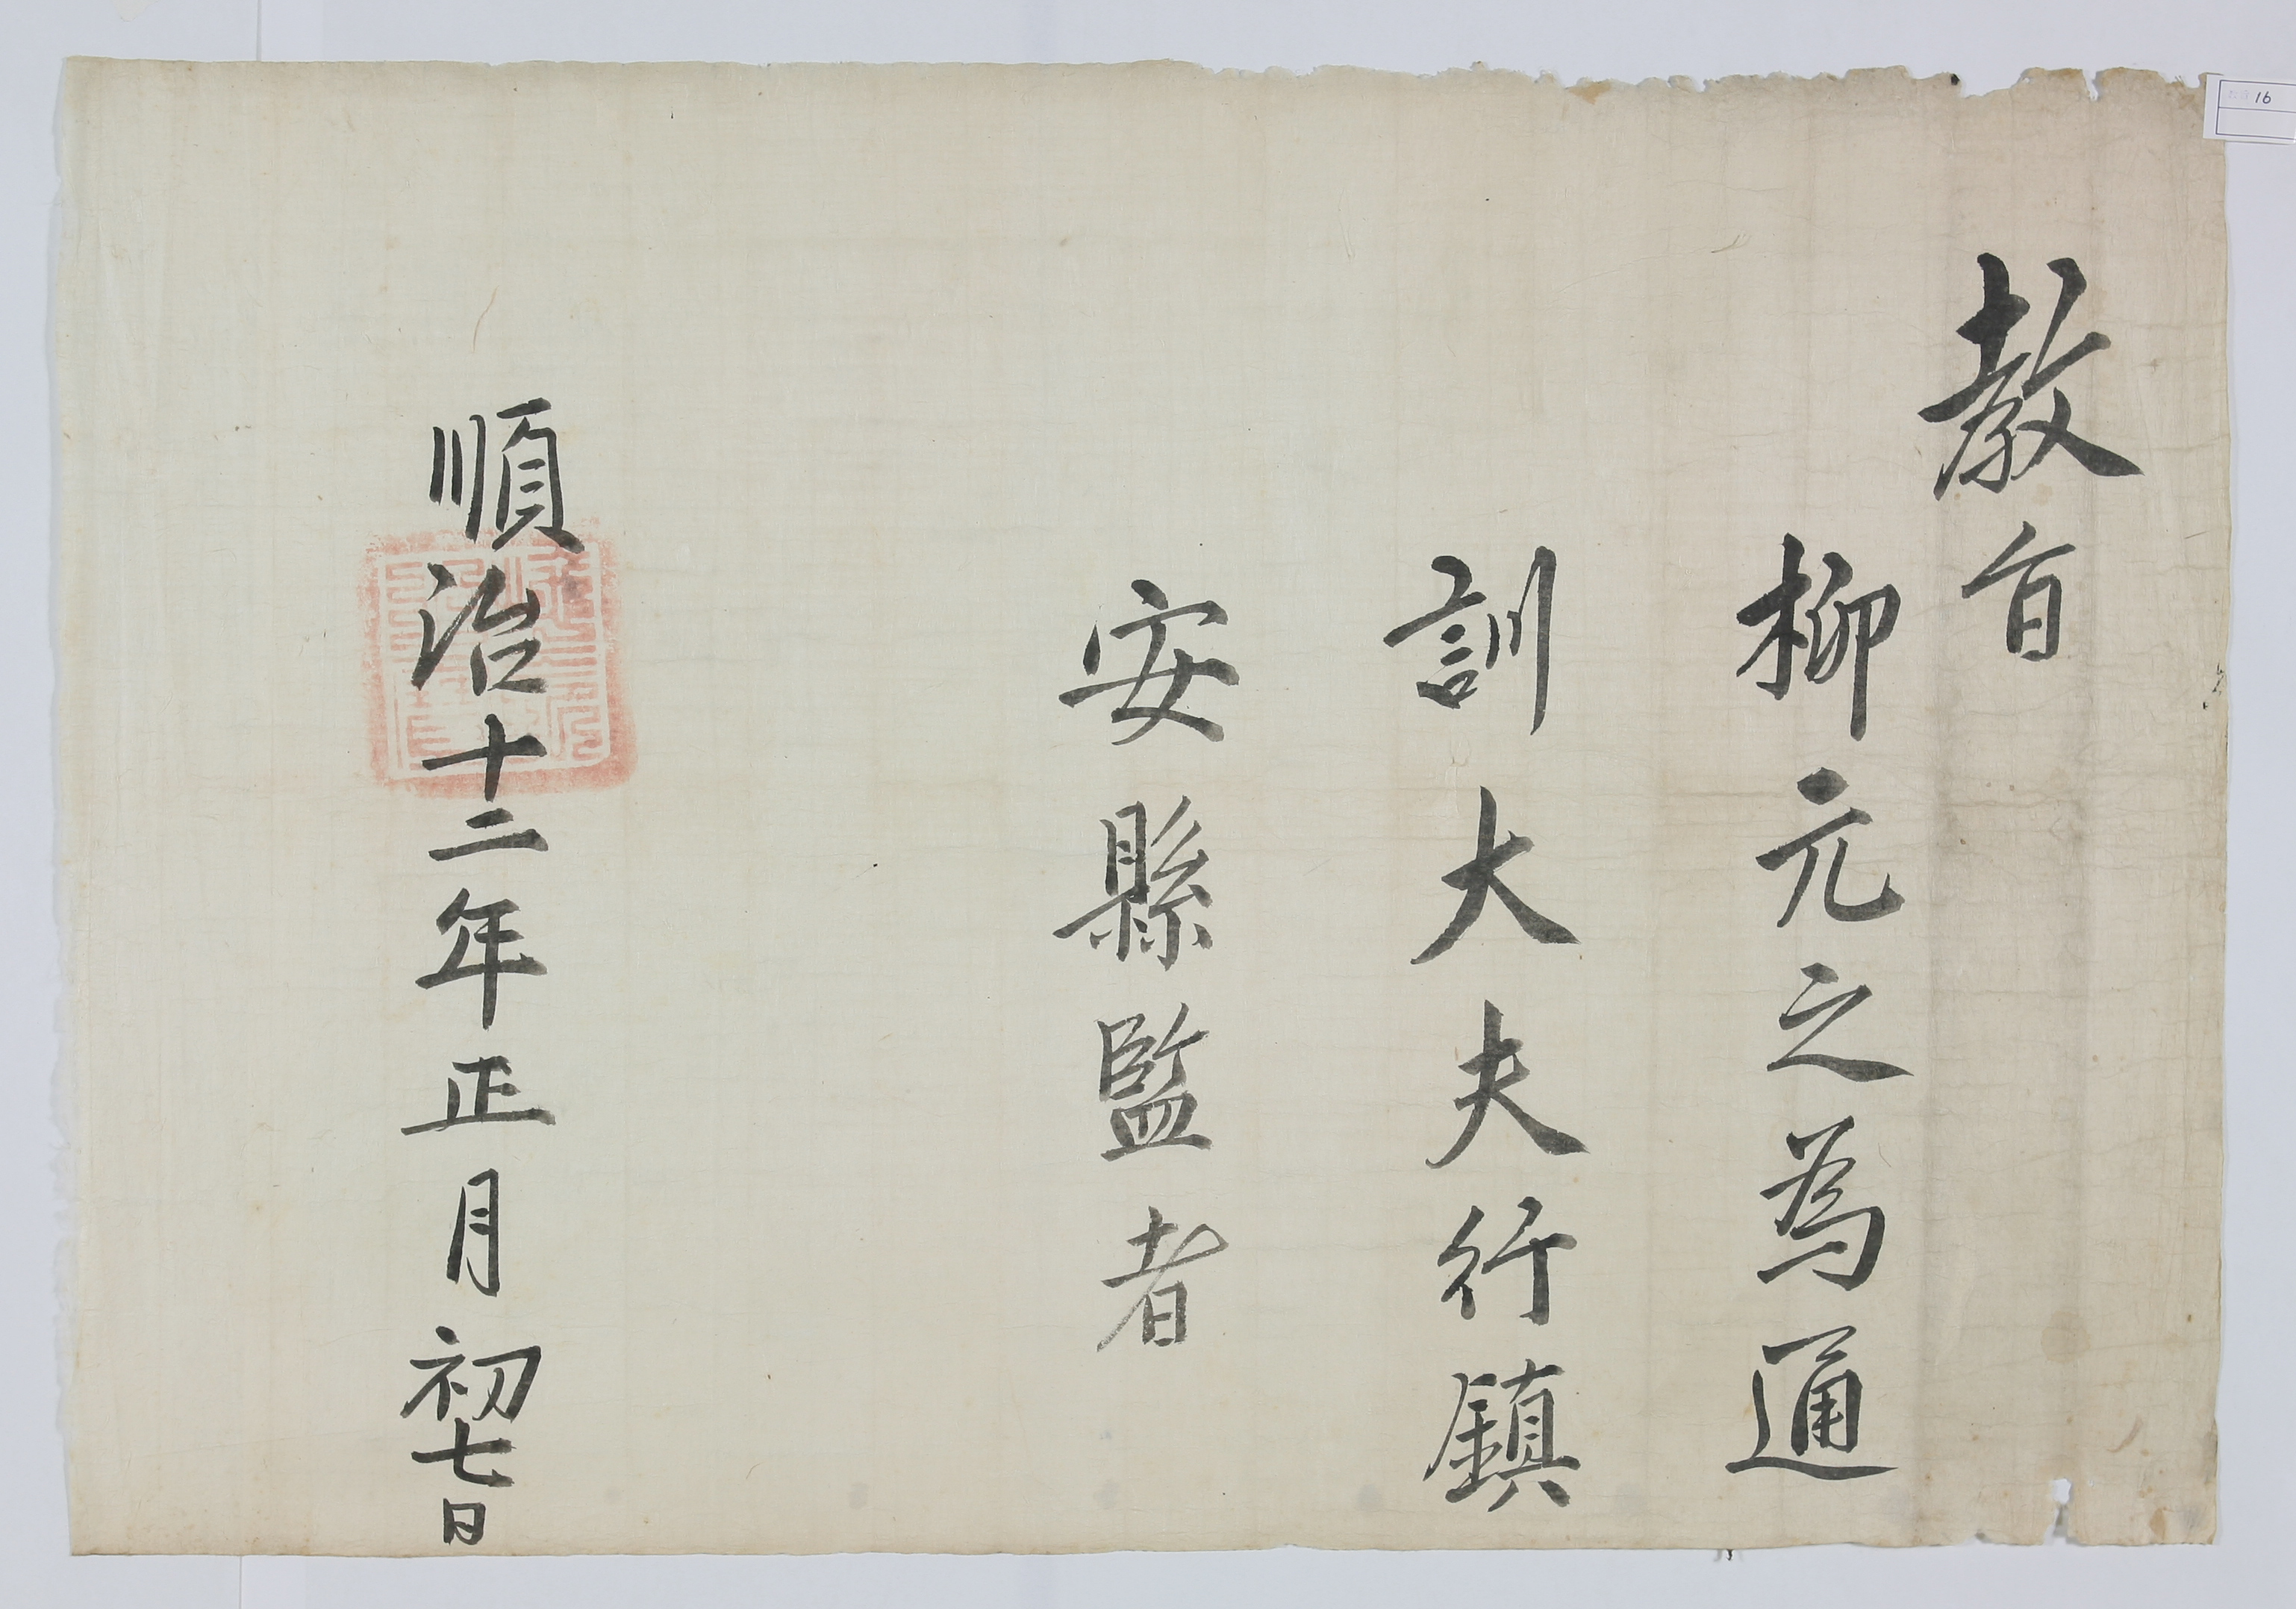 教旨
柳元之為通
訓大夫行鎮
安縣監者
順治十二年正月初七日
16